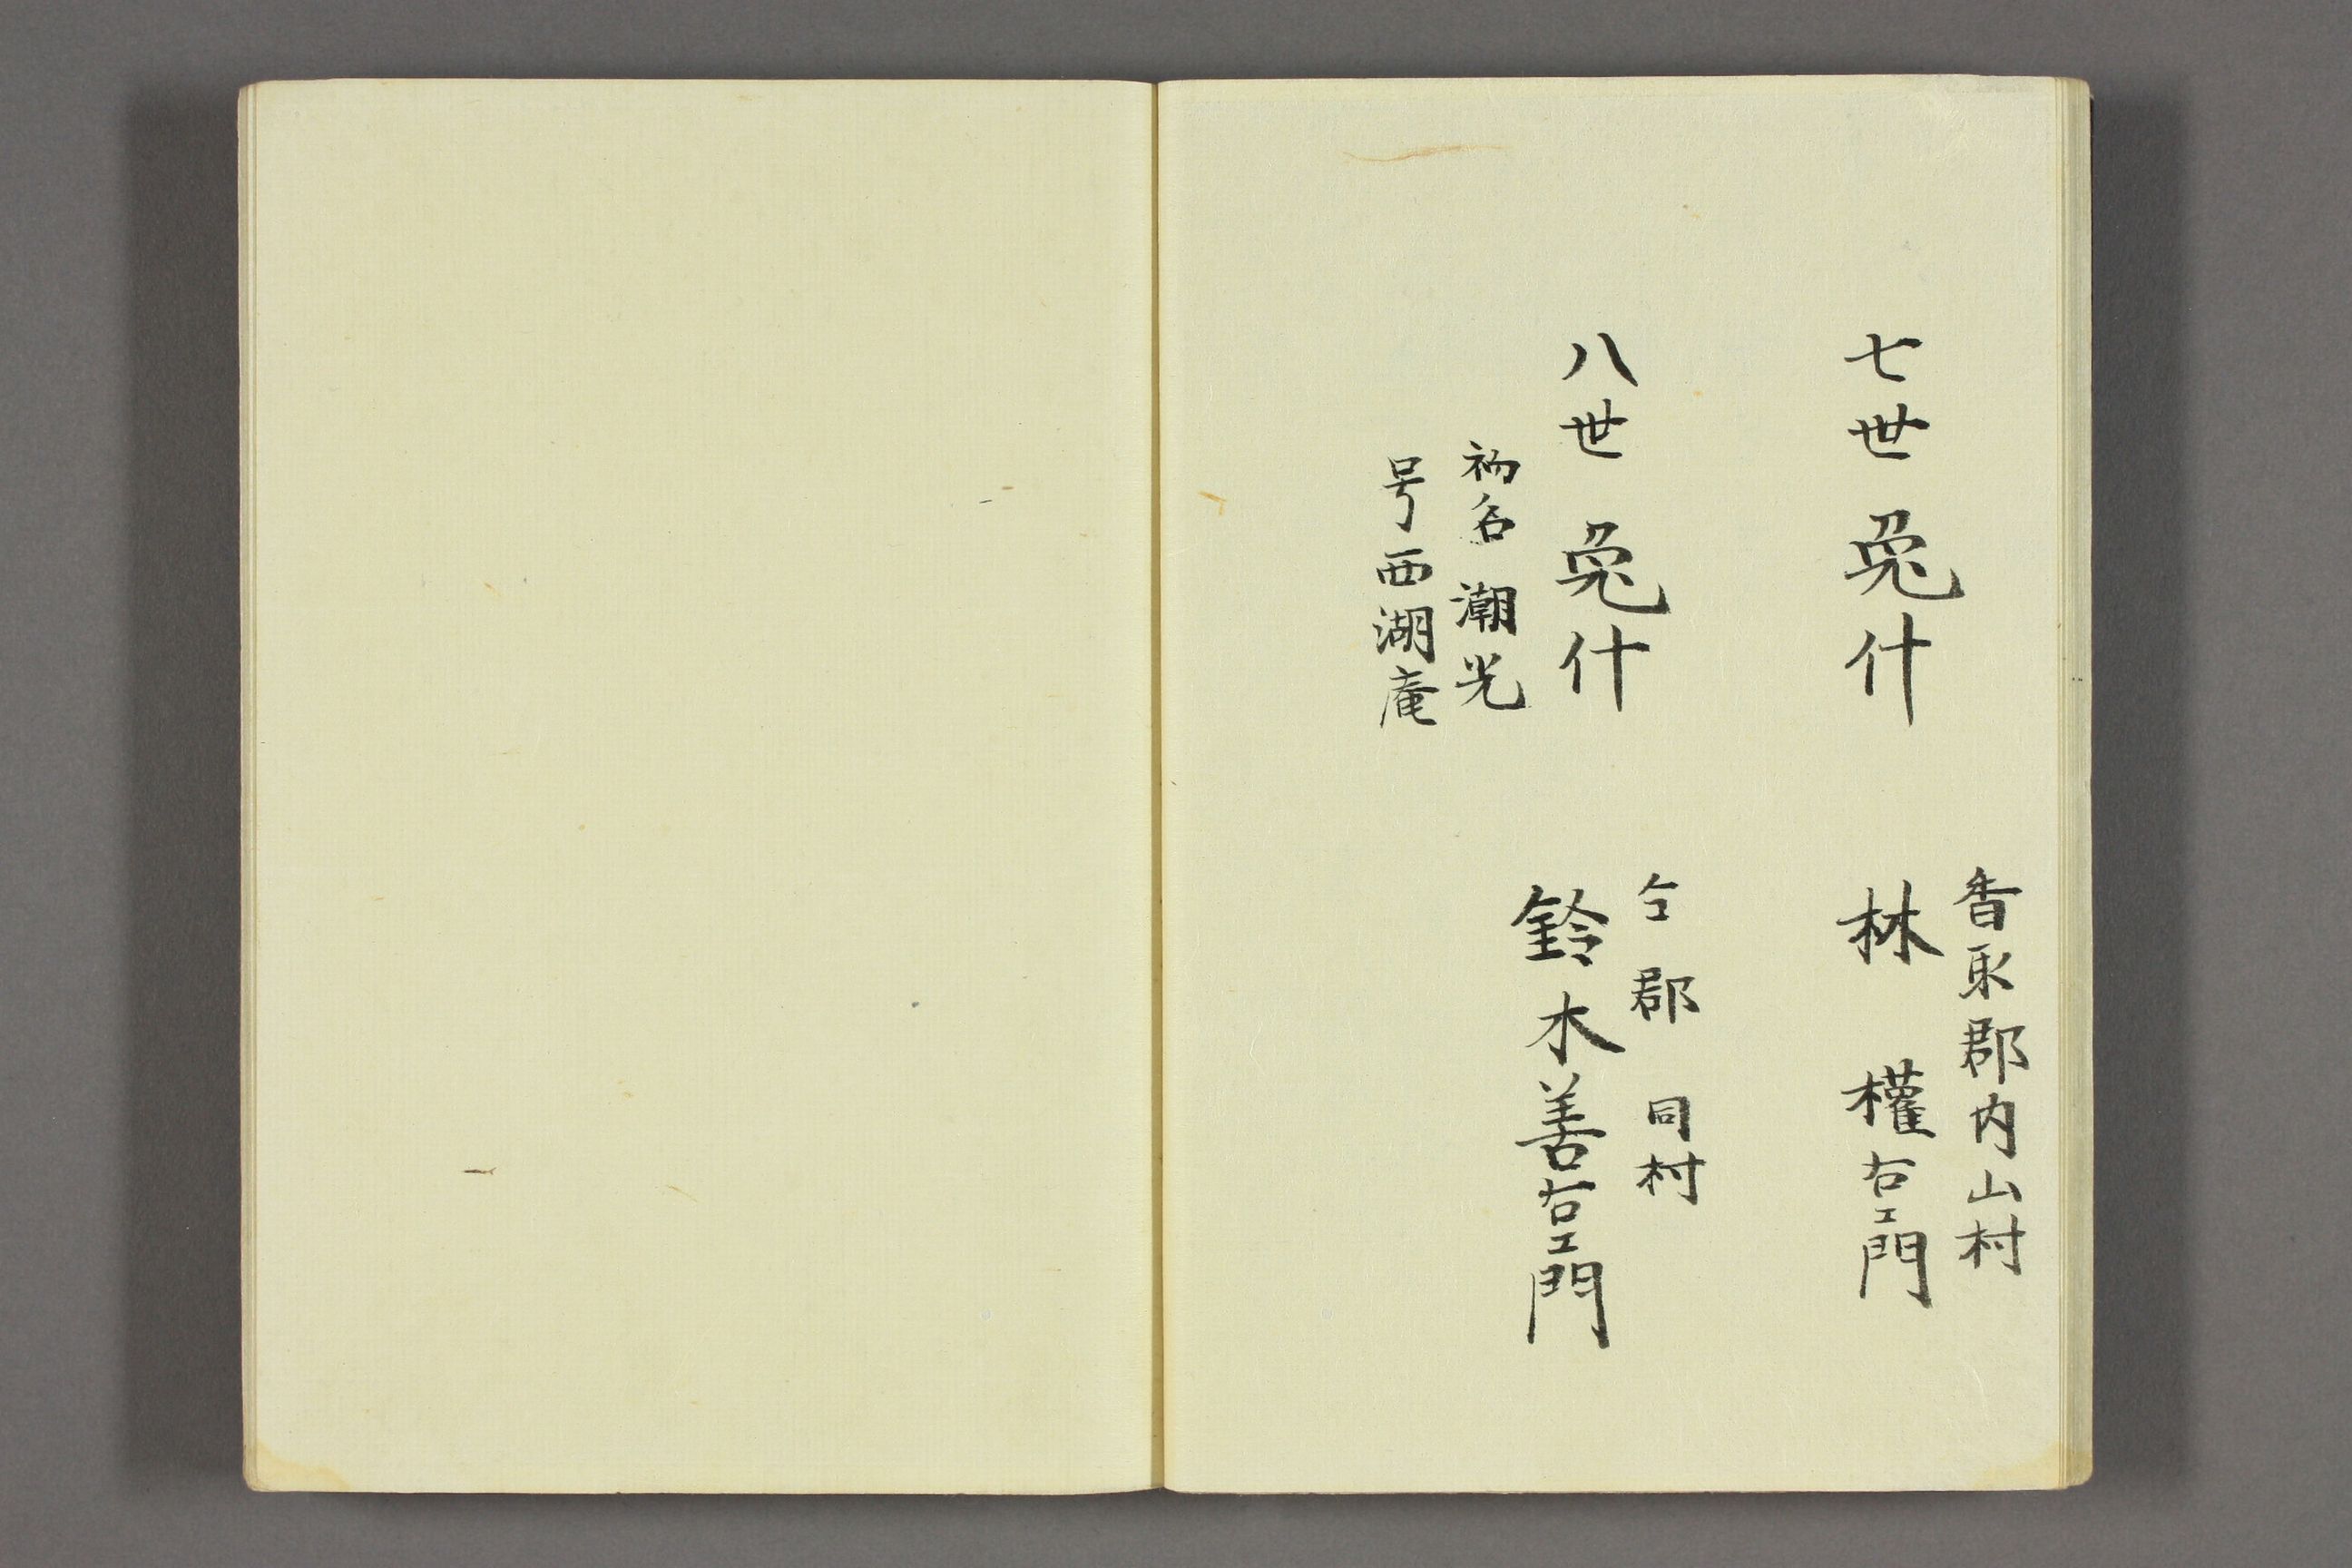 香取郡内山村
七世 兎什 林 權右エ門
仝郡 同村
八世 兎什 鈴木善右エ門
初名 潮光
号西湖庵